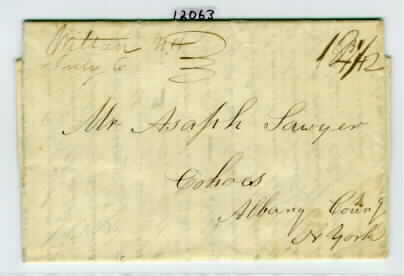 12063
Wilton NH
July 6
Mr Asaph Sawyer
Cohoes
Albany County
N York